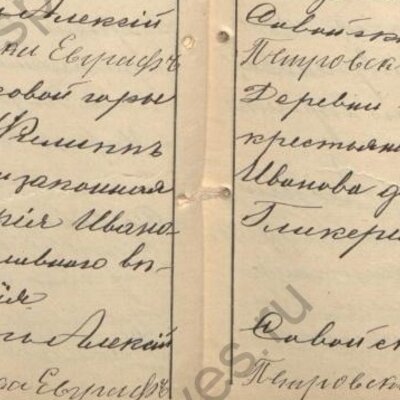 Алексій
Евграфъ
ковой горы
Филиппъ
законная
рія Ивано
славнаго вѣ-
ія
Алексій
Евграфъ
Савойск
Петровск
Деревни
крестьян
Иванова д
Гликері
Савойск
Петровска